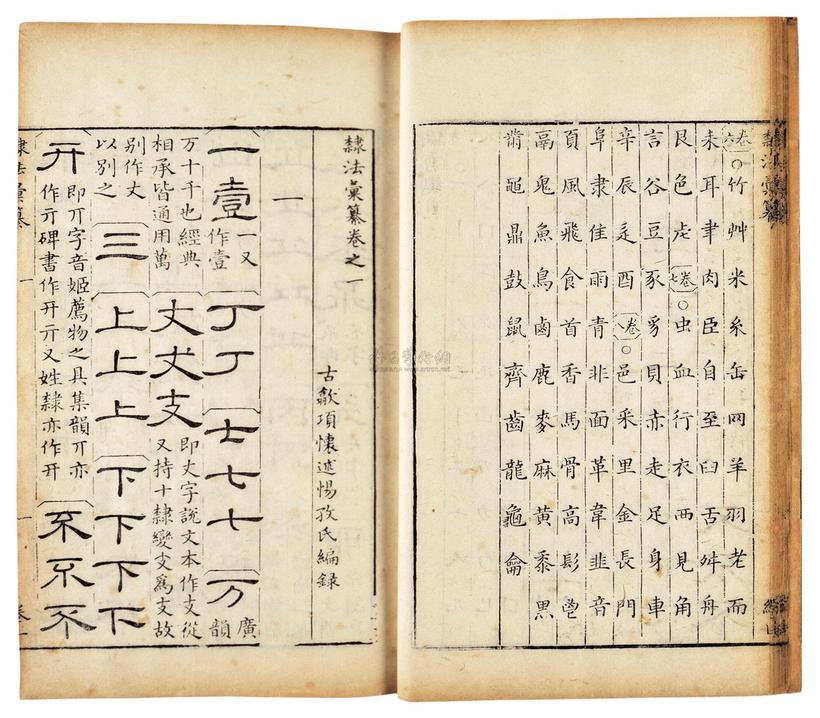 隸法彙纂
卷六○竹艸米糸缶网羊羽老而
耒耳聿肉臣自至臼舌舛舟
艮色虍卷七○虫血行衣襾見角
言谷豆豕豸貝赤走足身車
辛辰辵酉卷○邑釆里金長門
阜隶隹雨青非面革韋韭音
頁風飛食首香馬骨高髟鬯
鬲鬼魚鳥鹵鹿麥麻黃黍黑
黹黽鼎鼓鼠齊齒龍龜龠
隸法彙纂卷之
古歙項懷述惕孜氏編錄
一
一壹一又作壹丁丁七七七万廣韻
万十千也經典相承皆通用萬丈丈支即丈字說文本作支從又持十隸變支爲丈故
別作丈以別之三上上上下下下下
丌即丌字音姬薦物之具集韻丌亦作亓碑書作开亓又姓隸亦作开不不不
隸法彙纂
一